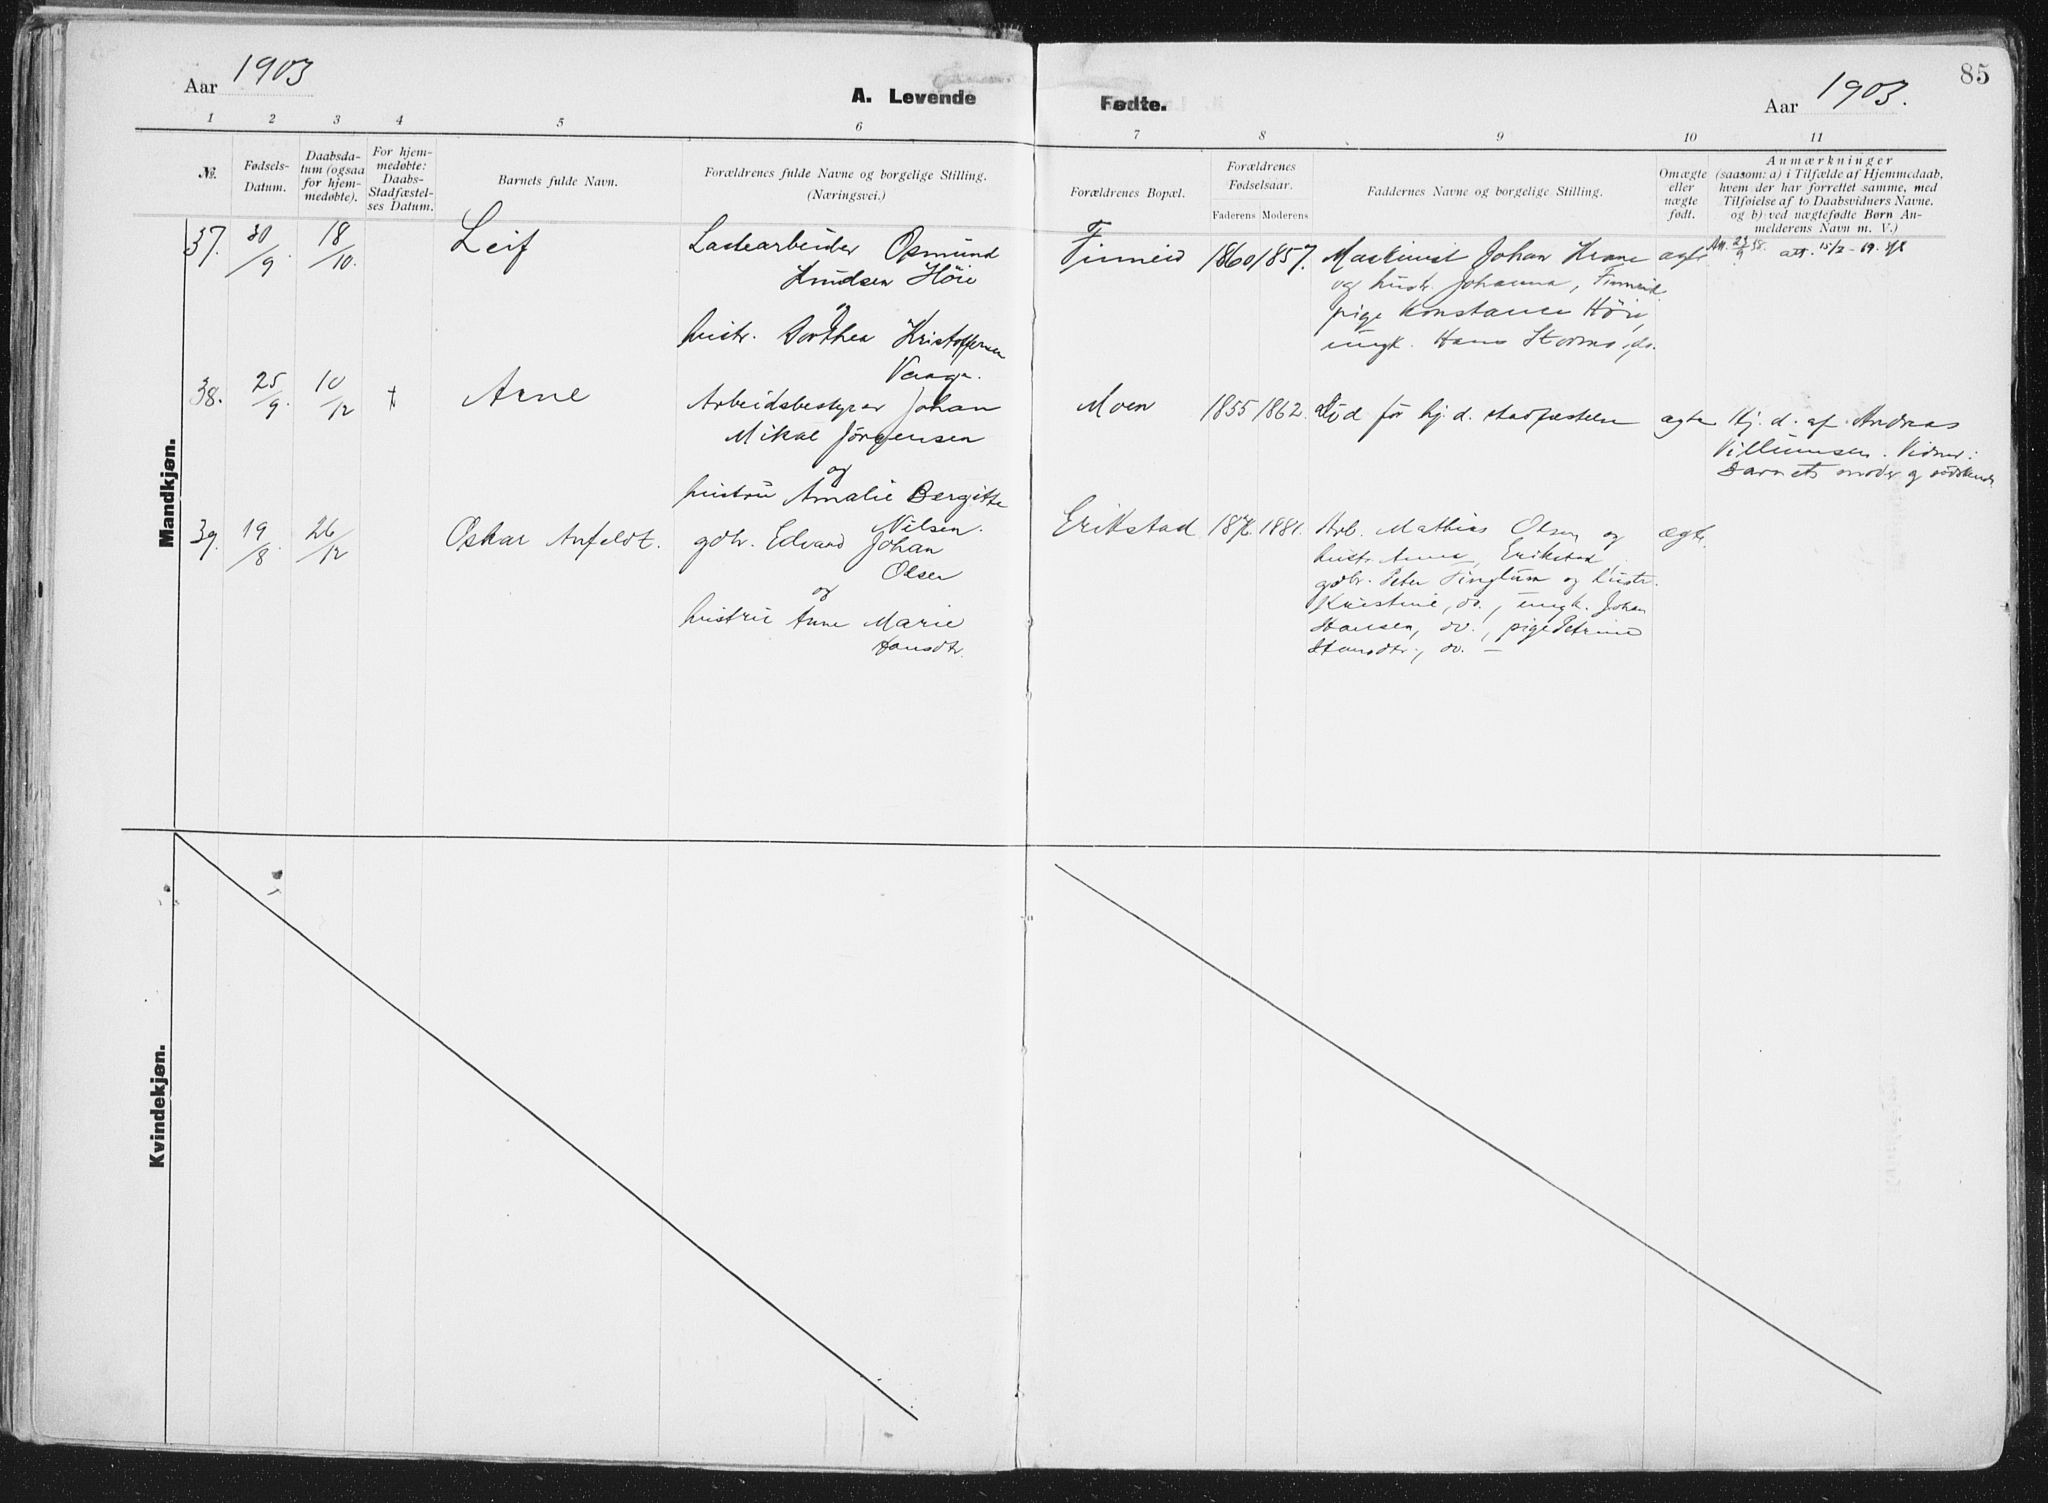 Aar 1903
A. Levende Fødte.
Aar 1903.
85
1 2 3 4 5 6 7 8 9 10 11
№.
Fødsels-
Datum.
Daabsda-
tum (ogsaa
for hjem-
medøbte).
For hjem-
medøbte:
Daabs-
Stadfæstel-
ses Datum.
Barnets fulde Navn.
Forældrenes fulde Navne og borgelige Stilling.
(Næringsvei.)
Forældrenes Bopæl.
Forældrenes
Fødselsaar.
Faderens Moderens
Faddernes Navne og borgelige Stilling.
Omægte
eller
uægte
født.
Anmærkninger
(saasom: a) i Tilfælde af Hjemmedaab,
hvem der har forrettet samme, med
Tilføielse af to Daabsvidners Navne.
og b) ved uægtefødte Børn An-
melderens Navn m. V.)
Mandkjøn.
37. 30/9 18/10. Leif
Lastearbeider Osmund
Knudsen Höie
og
hustr. Dorthea Kristoffersen
Vaage.
Finneid 1860 1857.
Maskinist Johan Krane
og hustr. Johanna, Finneid
pige Konstance Höie,
ungk. Hans Stormo, do.
ægte
att. 15/2-69.
38. 25/9. 10/12 † Arne
Arbeidsbestyrer Johan
Mikal Jörgensen
og
hustru Amalie Bergitte
Nilsen.
Moen 1855 1862.
Död før hj. d. stadfæstelse
ægte
Hj. d. af Andreas
Villumsen. Vidner:
Barnets moder og
39. 19/8. 26/12 Oskar Anfeldt.
gdbr. Edvard Johan
Olsen
og
hustru Anne Marie
Hansdtr.
Erikstad 1876. 1881.
Arb. Mathias Olsen og
hustr. Anna, Erikstad,
gdbr. Peter Tinglum og hustr.
Kristine, do., ungk. Johan
Hansen, do., pige Petrine
Hansdtr., do. –
ægte.
Kvindekjøn.